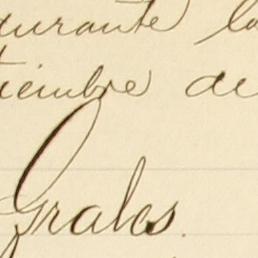 durante la
tiembre de
Grales.